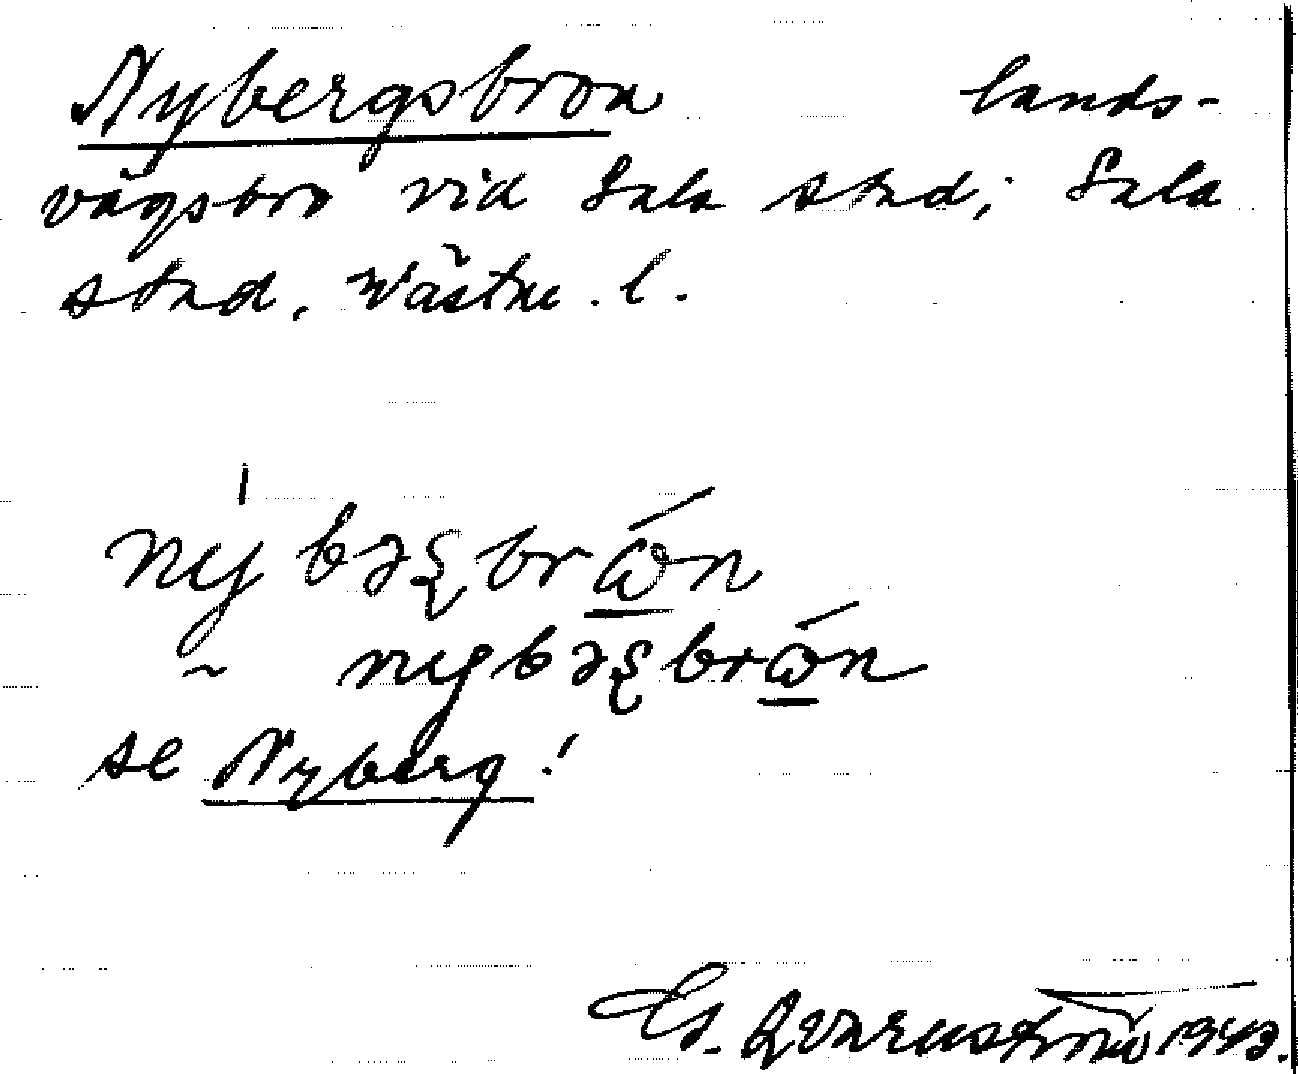 Nybergsbron lands-
vägsbro vid Sala stad; Sala
stad, Västm. l.
nybəʂbrώ̲n
~ nybəʂbrώ̲n
se Nyberg!
Qvarnström 1943.